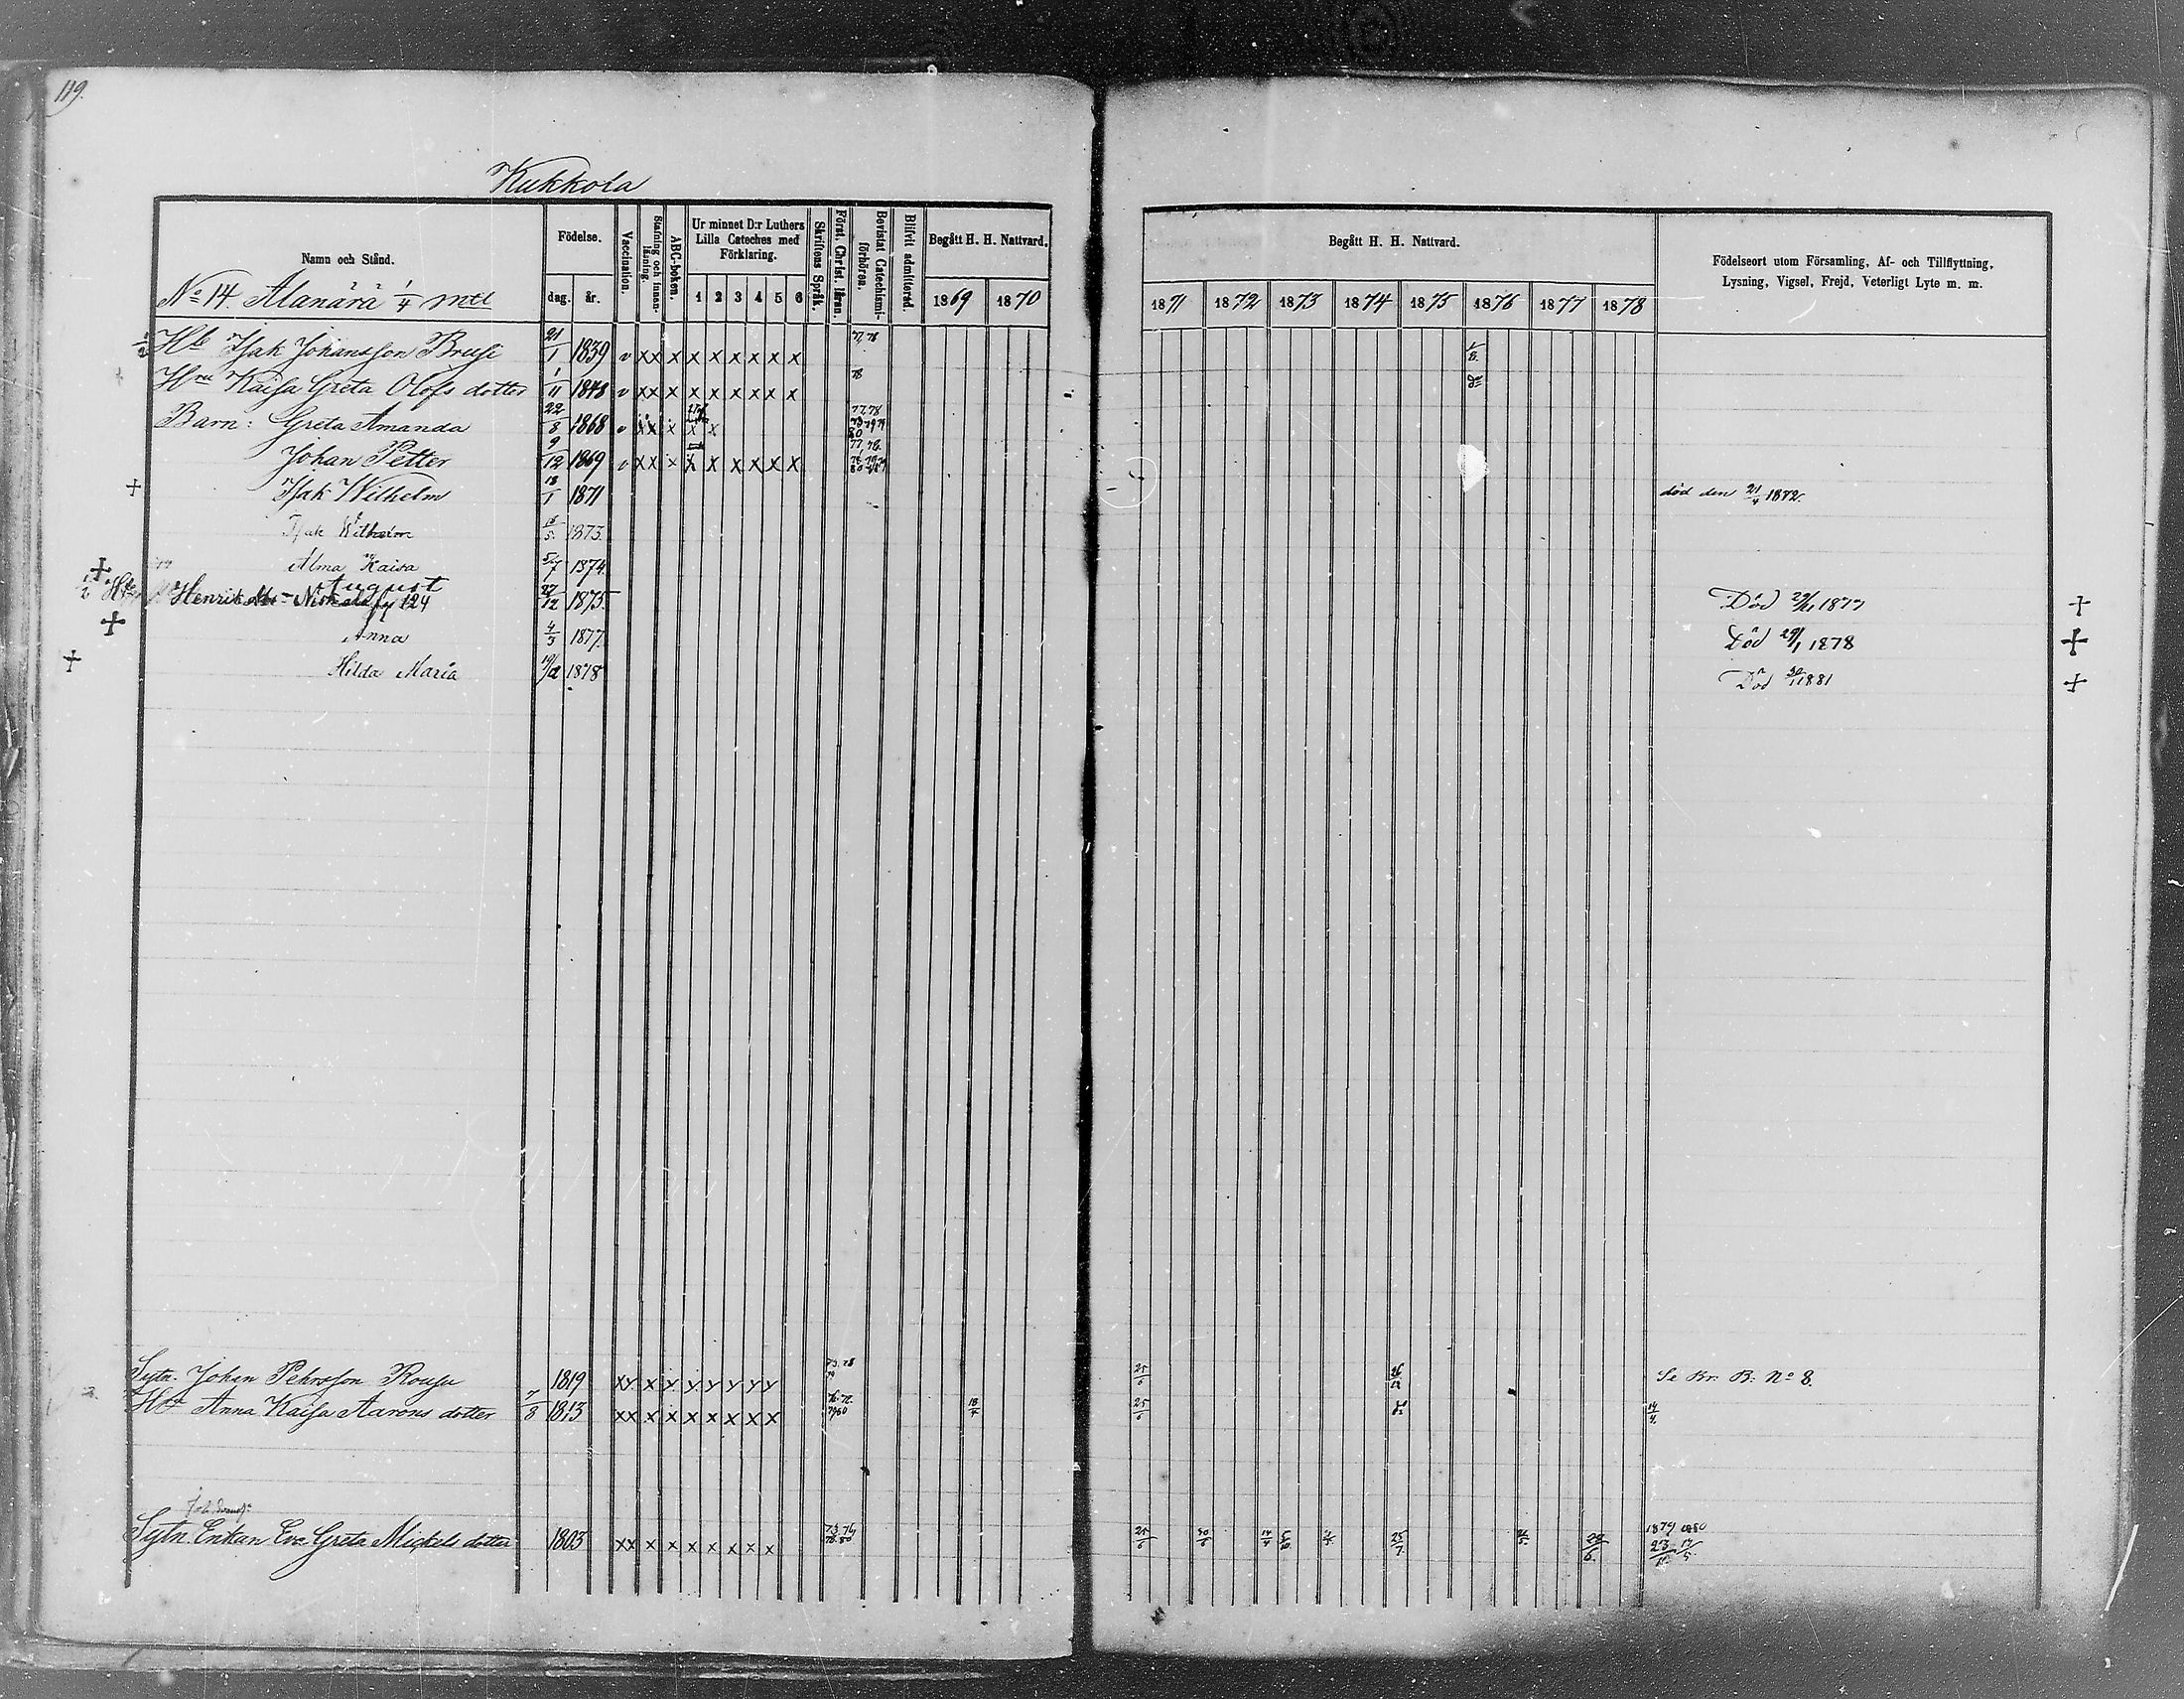 119.
Kukkola
Namn och Stånd.
Födelse.
dag.
år.
Vaccination.
Stafning och innanläsning.
ABC-boken.
Ur minnet D:r Luthers Lilla Cateches med Förklaring.
1 2 3 4 5 6
Skriftens Språk.
Först. Christ. läran.
Bevistat Catechismiförhören.
Blifvit admitterad.
Begått H. H. Nattvard.
1869 1870
Begått H. H. Nattvard.
1871 1872 1873 1874 1875 1876 1877 1878
Födelseort utom Församling, Af- och Tillflyttning,
Lysning, Vigsel, Frejd, Veterligt Lyte m. m.
No 14. Alanärä 1/4 mtl
Hb Isak Johansson Brusi 21/1 1839 v xx x x x x x x x 77, 78
Hru Kaisa Greta Olofs dotter 1/11 1848 v xx x x x x x x x 78 do
Barn: Greta Amanda 22/8 1868 v xx x x x 77,78
Johan Petter 9/12 1869 v xx x x x x x x x 77, 78
+ Isak Wilhelm 18/1 1871 död den 21/4 1872.
Isak Wilhelm 18/5 1873.
Alma Kaisa 5/7 1874.
+ August 27/12 1875. Död 29/11 1877 +
Henrik 124
+ Anna 4/3 1877. Död 29/1 1878 +
+ Hilda Maria 19/12 1878 Död 30/1 1881 +
Sytn. Johan Pehrsson Rousu 1819 xy x y y y y y y 73. 78 25/6 26/12 Se Kr. B. No 8.
Hu Anna Kaisa Aarons dotter 7/8 1813 xx x x x x x x x 18/4 25/6 do 14/4.
Sytn. Enkan Eva Greta Mickels dotter 1803 xx x x x x x x x 73 76 78.80 25/6 30/6 14/4 25/7. 1879 1880